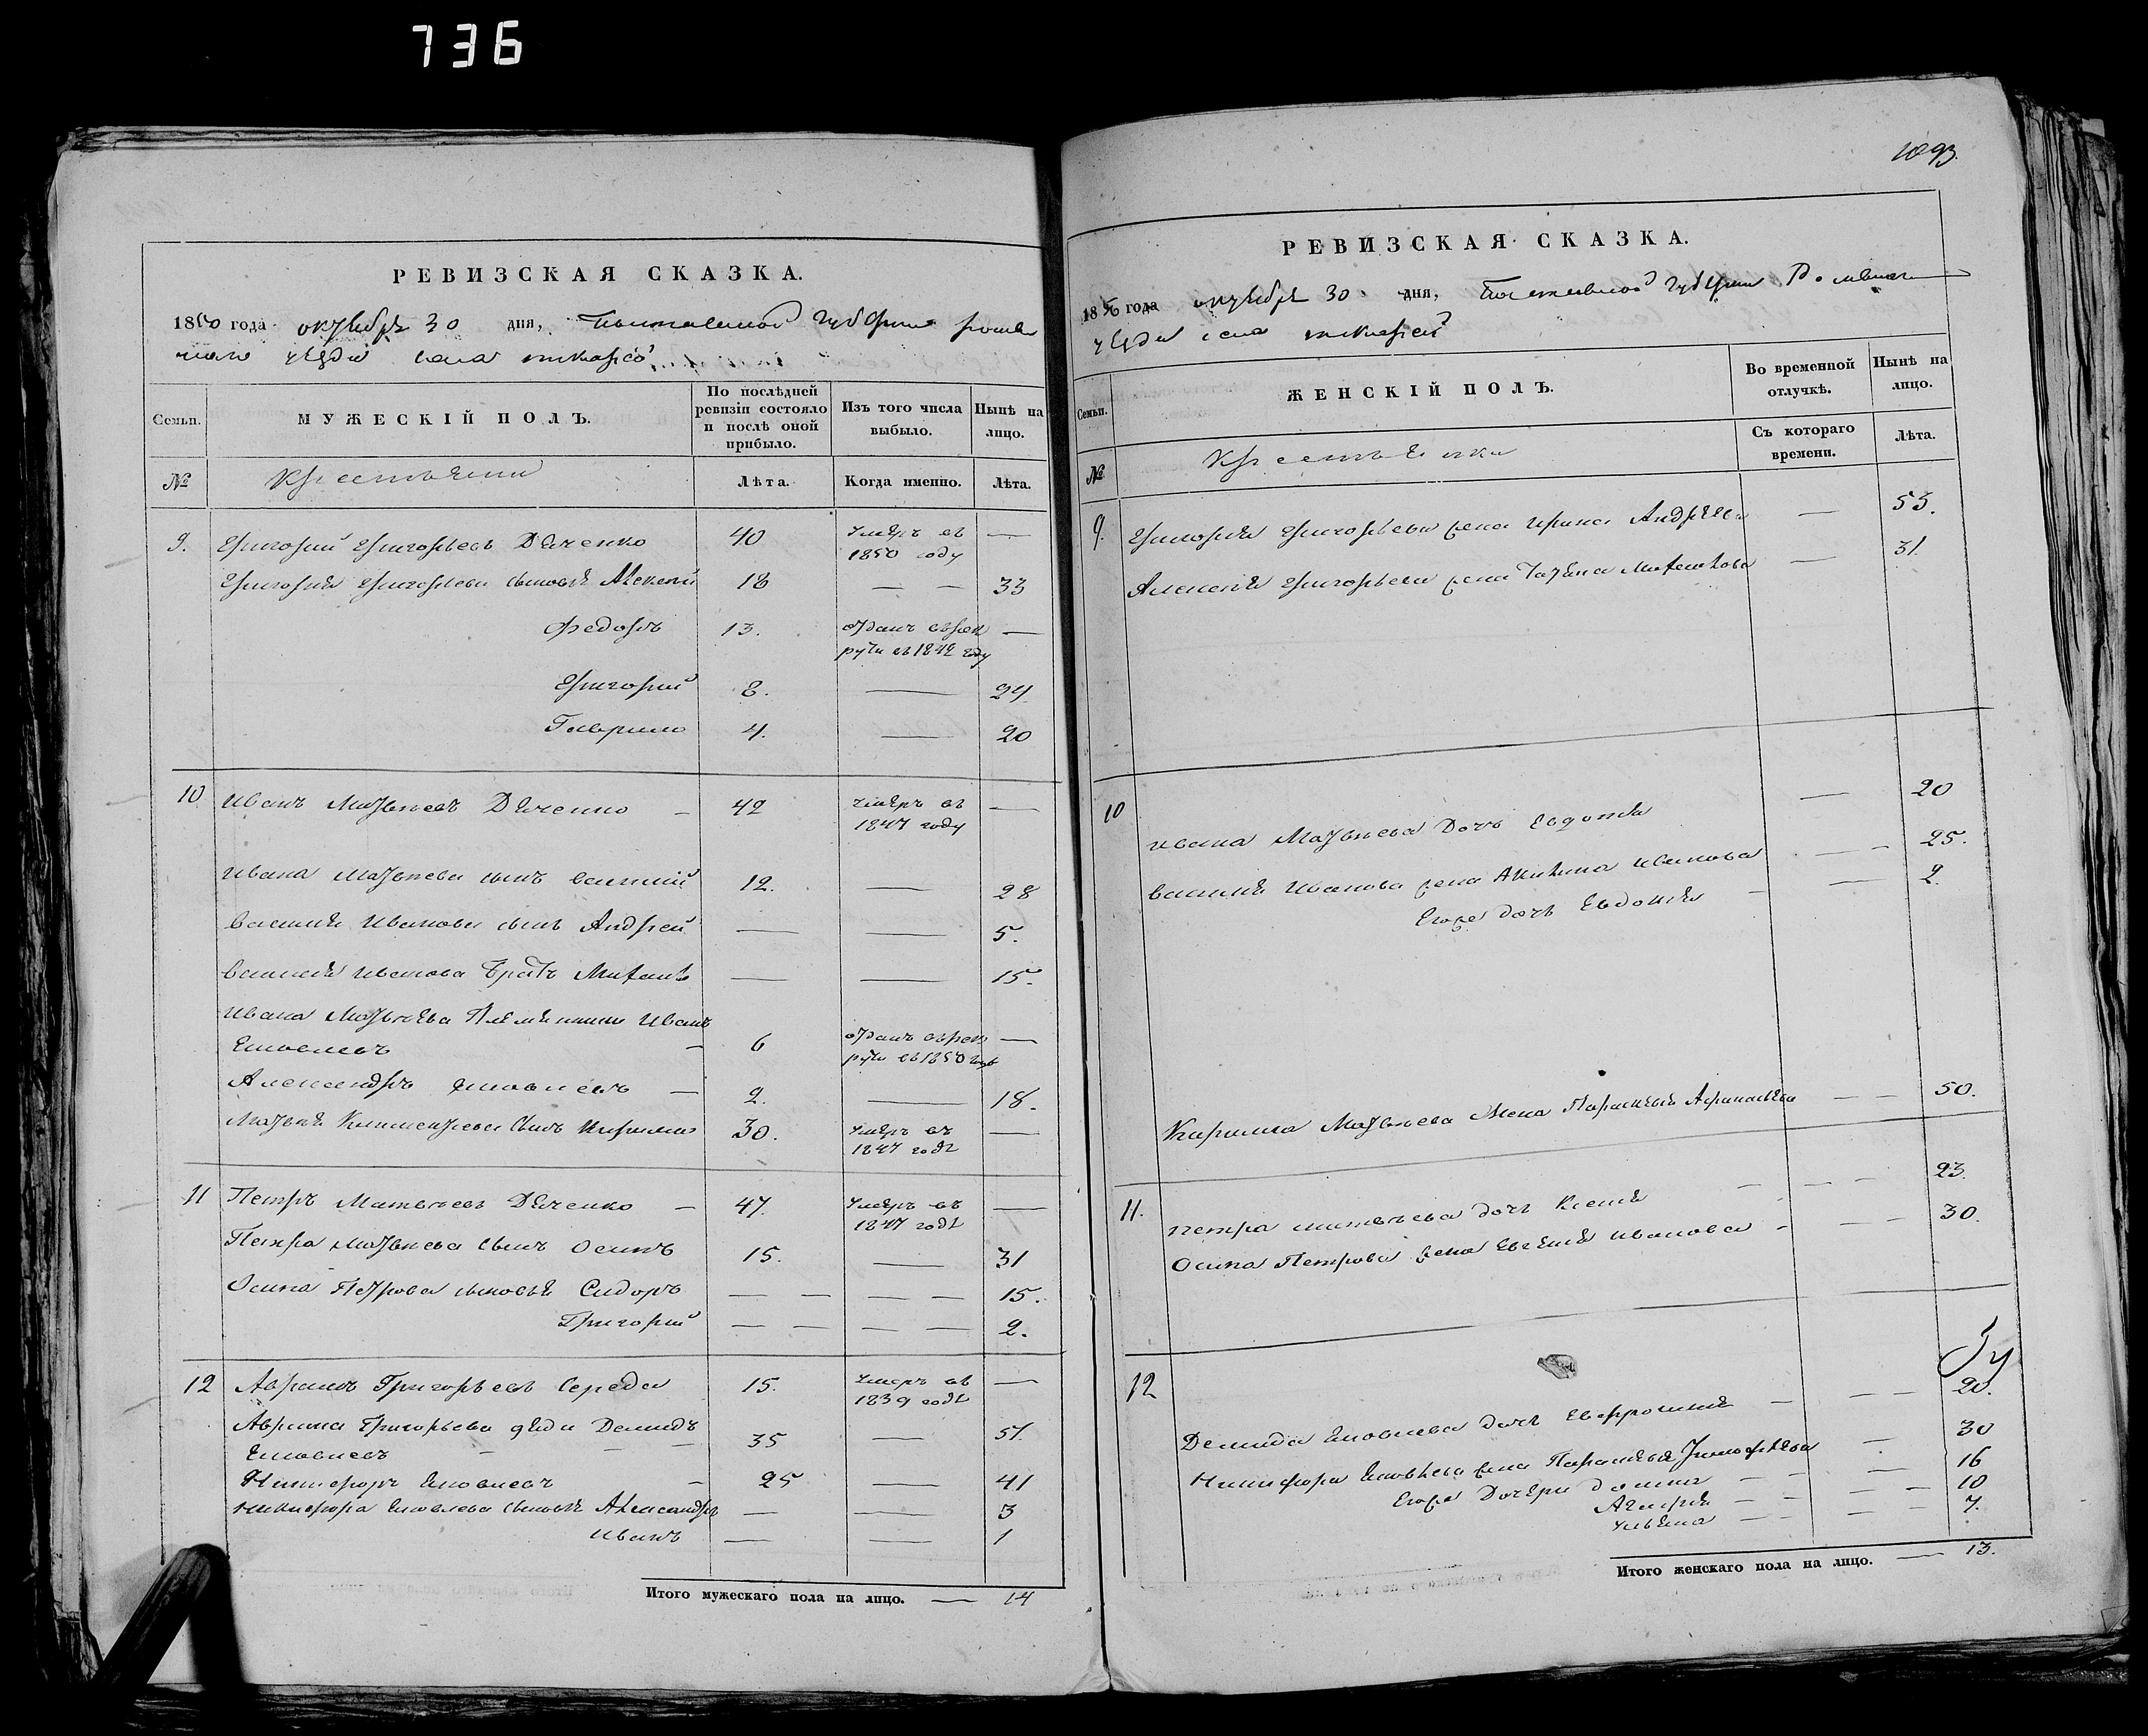 736
РЕВИЗСКАЯ СКАЗКА.
1850 года октября 30 дня, Полтавской губернии Ромен
скаго уезда села
Семьи.
МУЖЕСКІЙ ПОЛЪ.
По послѣдней ревизіи состояло и послѣ оной прибыло.
Изъ того числа выбыло.
Нынѣ на лицо.
№
Крестьяне
Лѣта.
Когда именно.
Лѣта.
9. Григорий Григорьевъ Дяченко 40 умеръ въ 1850 году —
Григория Григорьева сыновья Алексей 18 — — 33
Федоръ 13. отданъ въ рек
рути въ 1842 году —
Григорий 8. — 24
Гаврило 4. — 20
10 Иванъ Матвѣевъ Дяченко — 42 умеръ въ 1847 году —
Ивана Матвѣева сынъ Василий 12. — 28
Василия Иванова сынъ Андрей — — 5.
Василия Иванова братъ Михаилъ — — 15.
Ивана Матвѣева племянники Иванъ
Яковлевъ — 6 отданъ въ рек
рути въ 1850 году —
Александръ Яковлевъ — 2. — 18.
Матвѣя сынъ Кирило 30. умеръ въ 1847 годѣ —
11 Петръ Матвѣевъ Дяченко — 47. умеръ въ 1847 годѣ —
Петра Матвѣева сынъ Осипъ 15. — 31
Осипа Петрова сыновья Сидоръ — — — — 15.
Григорий — — — — 2.
12 Аврамъ Григорьевъ Середа 15. умеръ въ 1839 годѣ —
Аврама Григорьева дяди Демидъ
Яковлевъ — — — 35 — 51.
Никифоръ Яковлевъ — 25 — 41
Никифора Яковлева сыновья Александръ — — 3
Иванъ — — 1
Итого мужескаго пола на лицо. — 14
1093.
РЕВИЗСКАЯ СКАЗКА.
1850 года октября 30 дня, Полтавской губернии Роменскаго
уезда села
Семьи.
ЖЕНСКІЙ ПОЛЪ.
Во временной отлучкѣ.
Нынѣ на лицо.
№
Крестьянки
Съ котораго времени.
Лѣта.
9. Григория Григорьева жена Ирина Андреева — 53.
Алексея Григорьева жена Татяна Михайлова — 31.
10 Ивана Матвѣева дочь Евдокия — 20
Василия Иванова жена Акилина Иванова — — 25.
Егоже дочь Евдокия — — 2.
Кирила Матвѣева жена Параскевья Афанасьева — — 50.
11. Петра Матвѣева дочь Ксения — — — 23.
Осипа Петрова жена Евгения Иванова — — — 30.
12
Демида Яковлева дочь Ефросиния — — — 20.
Никифора Яковлева жена Параскевья Тимофеева — 30
Егоже дочери Домна — — — 16
Агафия — — — — 10
Ульяна — — — 7.
Итого женскаго пола на лицо. — 13.